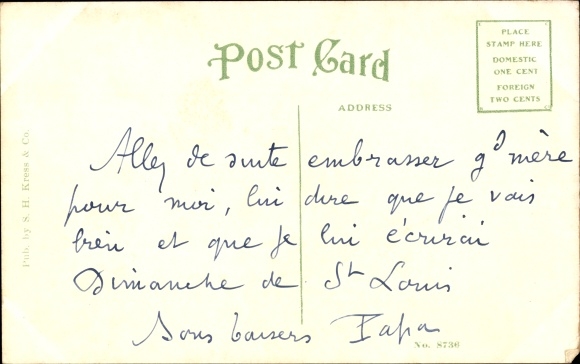 Post Card
PLACE
STAMP HERE
DOMESTIC
ONE CENT
FOREIGN
TWO CENTS
ADDRESS
Pub. by S. H. Kress & Co.
Allez de suite embrasser gd mère
pour moi, lui dire que je vais
bien et que je lui écrirai
Dimanche de St Louis
Bons baisers Papa
No. 8736